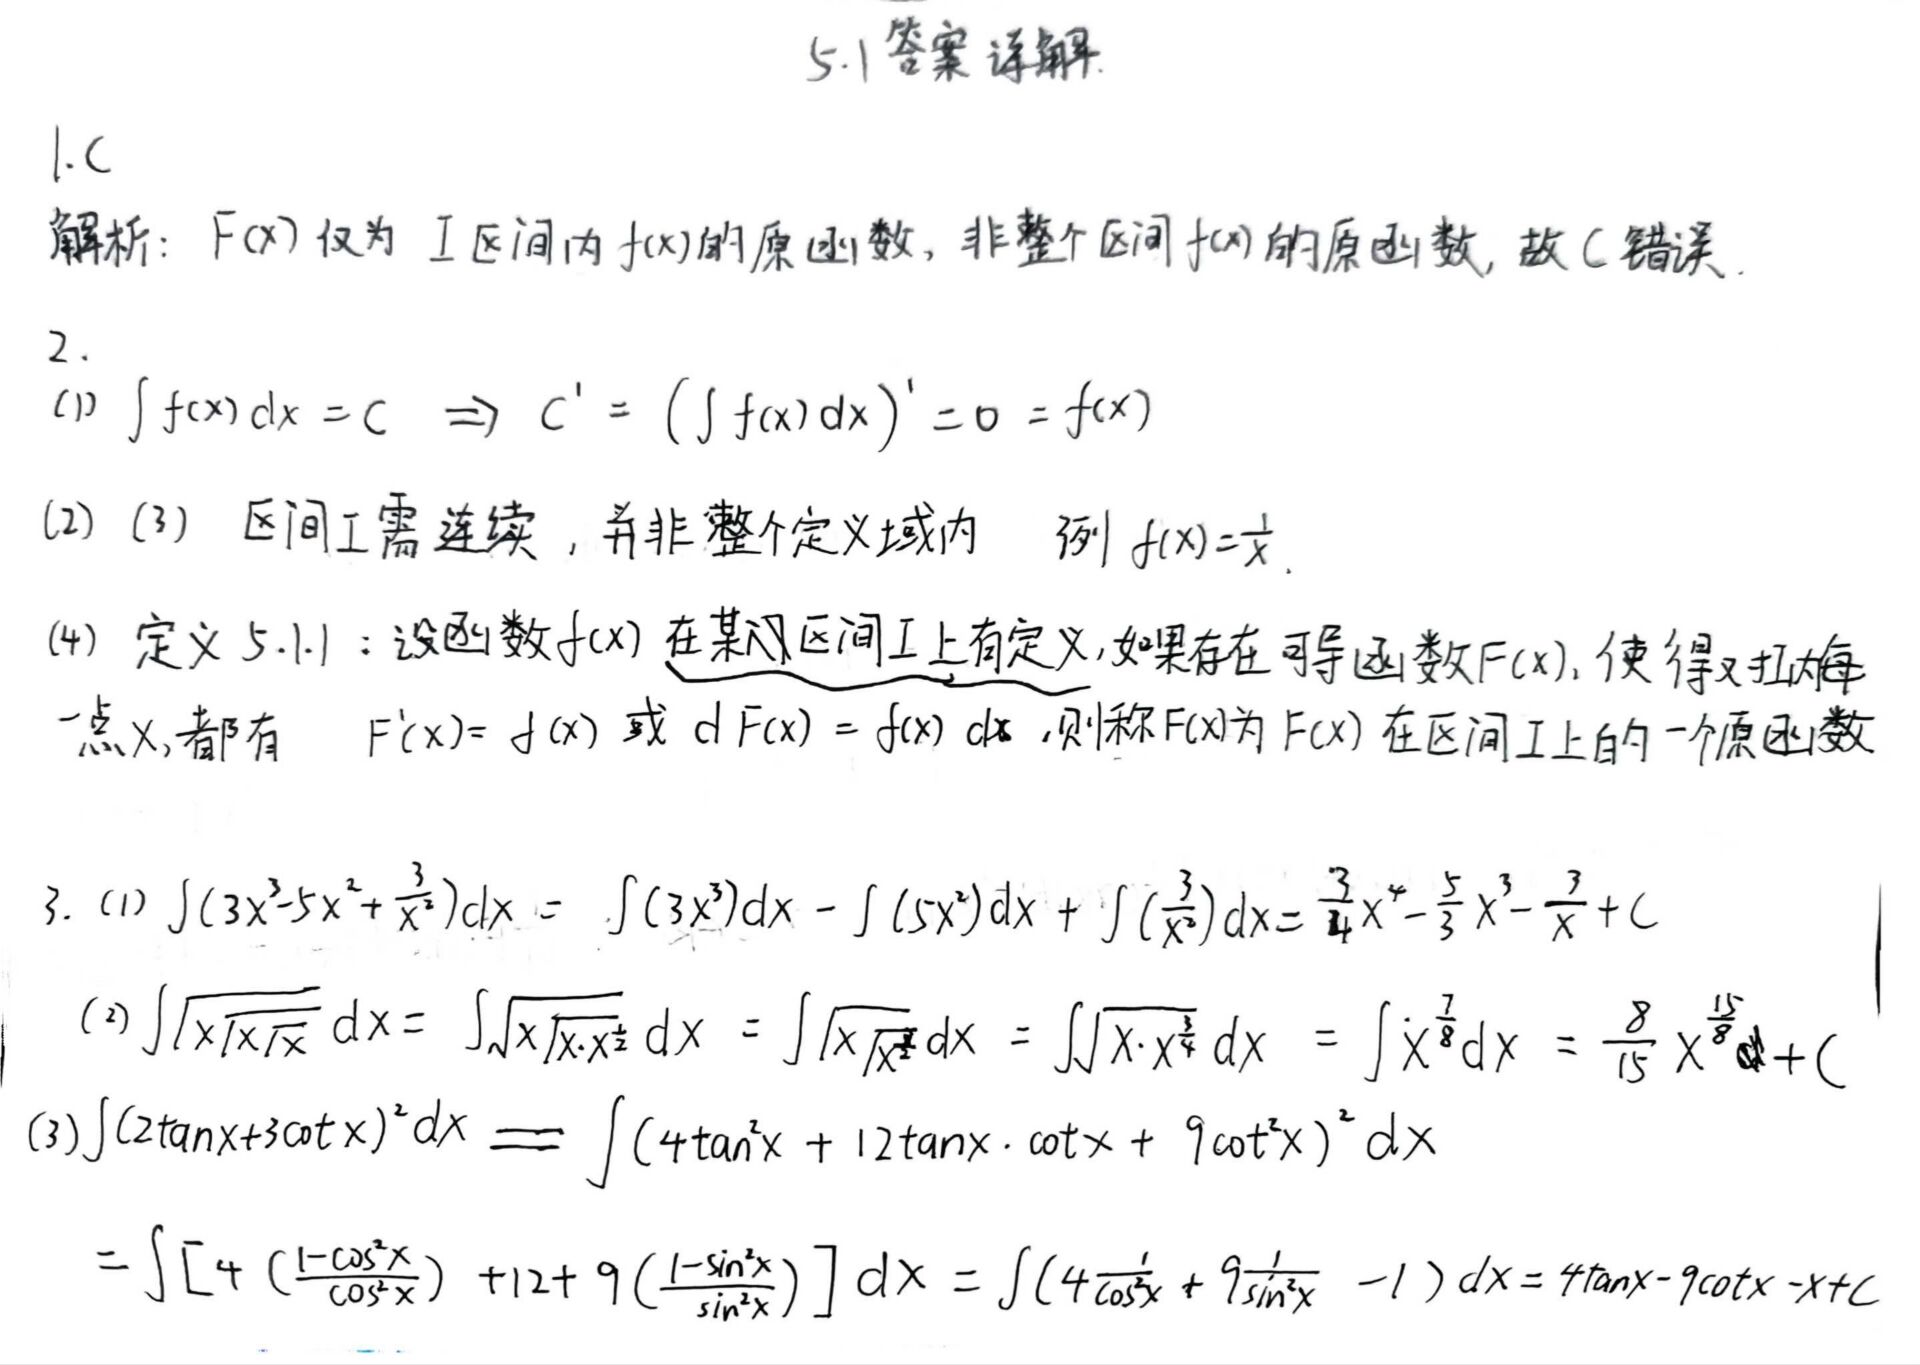 5.1答案详解.
1.C
解析: F(x)仅为 I区间内f(x)的原函数, 非整个区间f(x)的原函数, 故C错误.
2.
(1) ∫f(x)dx = C ⇒ C' = (∫f(x)dx)' = 0 = f(x)
(2) (3) 区间I需连续, 并非整个定义域内 例 f(x)=1/x.
(4) 定义5.1.1: 设函数f(x)在某区间I上有定义, 如果存在可导函数F(x), 使得对I内每
一点x, 都有 F'(x)=f(x) 或 dF(x)=f(x)dx, 则称F(x)为F(x)在区间I上的一个原函数
3. (1) ∫(3x³-5x²+3/x²)dx = ∫(3x³)dx - ∫(5x²)dx + ∫(3/x²)dx = 3/4 x⁴ - 5/3 x³ - 3/x + C
(2) ∫√(x√(x√x)) dx = ∫√(x√(x·x^(1/2))) dx = ∫√(x√(x^(3/2))) dx = ∫√(x·x^(3/4)) dx = ∫x^(7/8) dx = 8/15 x^(15/8) + C
(3) ∫(2tanx+3cotx)² dx = ∫(4tan²x + 12tanx·cotx + 9cot²x)² dx
= ∫[4((1-cos²x)/cos²x) + 12 + 9((1-sin²x)/sin²x)] dx = ∫(4 1/cos²x + 9 1/sin²x - 1) dx = 4tanx - 9cotx - x + C